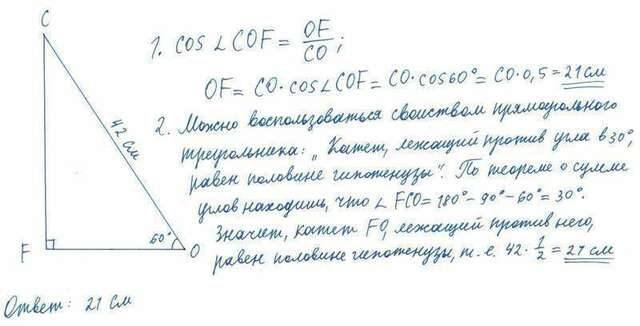 C
1. cos ∠COF = OF/CO ;
OF = CO·cos∠COF = CO·cos60° = CO·0,5 = 21 см
42 см
2. Можно воспользоваться свойством прямоугольного
треугольника: „Катет, лежащий против угла в 30°,
равен половине гипотенузы". По теореме о сумме
углов находим, что ∠FCO = 180° - 90° - 60° = 30°.
Значит, катет FO, лежащий против него,
равен половине гипотенузы, т. е. 42 · 1/2 = 21 см
F
60°
O
Ответ: 21 см